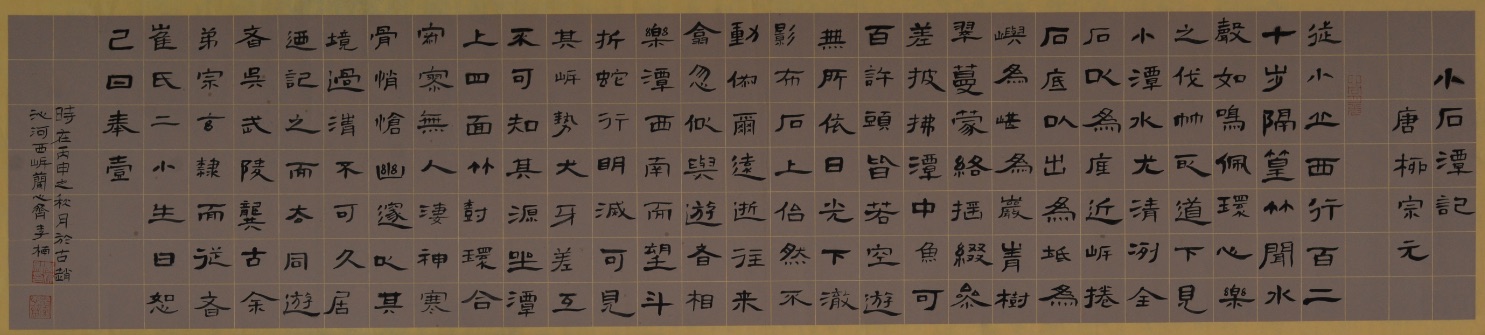 小石潭記
唐柳宗元
從小丘西行百二
十步隔篁竹聞水
聲如鳴佩環心樂
之伐竹取道下見
小潭水尤清冽全
石以為底近岸捲
石底以出為坻為
嶼為嵁為巖青樹
翠蔓蒙絡搖綴參
差披拂潭中魚可
百許頭皆若空遊
無所依日光下澈
影布石上佁然不
動俶爾遠逝往來
翕忽似與遊者相
樂潭西南而望斗
折蛇行明滅可見
其岸勢犬牙差互
不可知其源坐潭
上四面竹樹環合
寂寥無人淒神寒
骨悄愴幽邃以其
境過清不可久居
迺記之而去同遊
者吳武陵龔古余
弟宗玄隸而從者
崔氏二小生曰恕
己曰奉壹
時在丙申之秋月於古趙
沁河西岸蘭心齋李栖